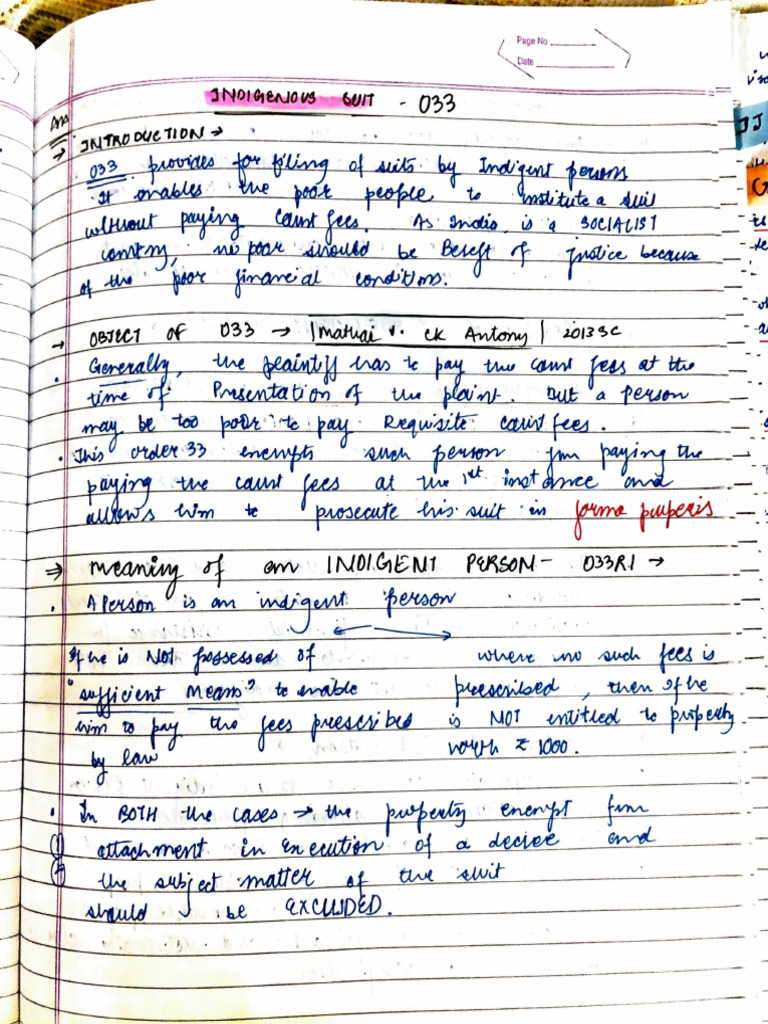 Page No
Date
INDIGENIOUS SUIT - O33
Ans
→ INTRODUCTION →
O33 provides for filing of suits by Indigent persons
It enables the poor people to institute a suit
without paying court fees. As India is a SOCIALIST
country, no poor should be Bereft of justice because
of the poor financial conditions.
→ OBJECT OF O33 → | Mathai v. CK Antony | 2013 SC
• Generally, the plaintiff has to pay the court fees at the
time of Presentation of the plaint. But a Person
may be too poor to pay Requisite court fees.
• This order 33 exempts such person from paying the
paying the court fees at the 1st instance and
allows him to prosecute his suit in forma pauperis
⇒ Meaning of an INDIGENT PERSON - O33R1 →
• A Person is an indigent person
If he is NOT possessed of
"sufficient Means" to enable
him to pay the fees prescribed
by law
where no such fees is
prescribed, then if he
is NOT entitled to property
worth ₹ 1000.
• In BOTH the cases → the property exempt from
① attachment in execution of a decree and
② the subject matter of the suit
should be EXCLUDED.